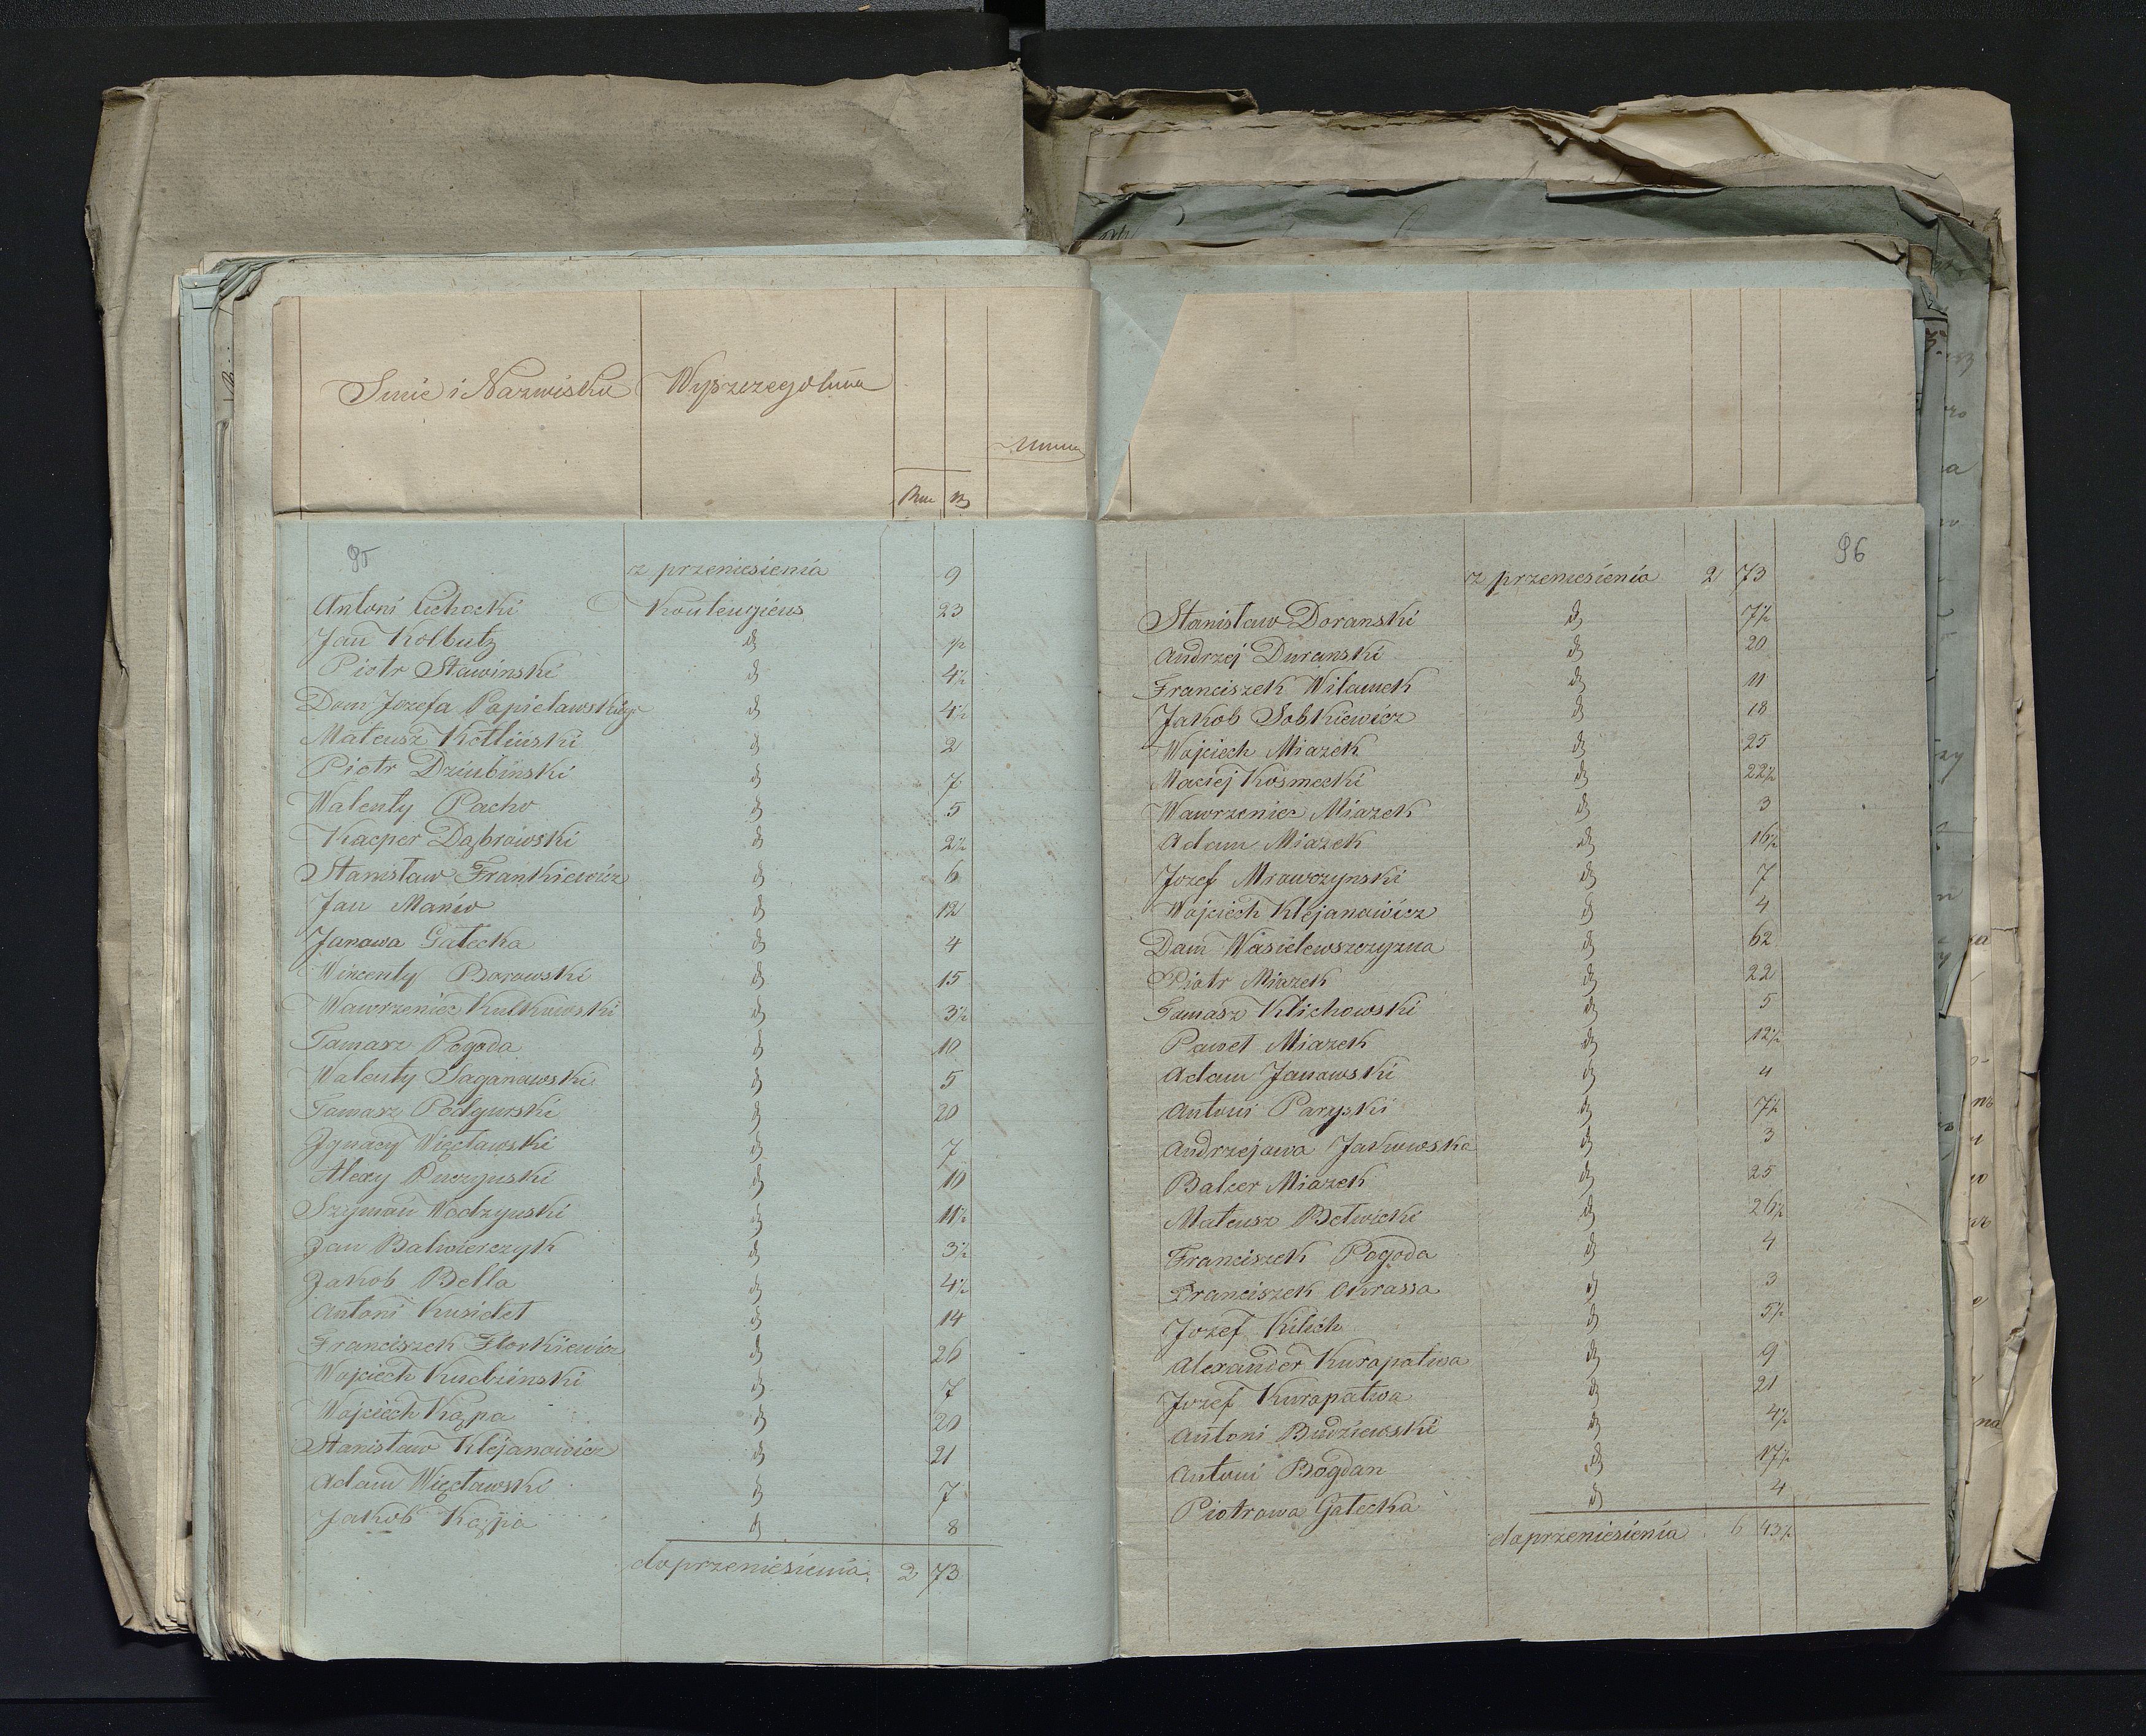 Imie i Nazwisko Wyszczegolnia
Rur. K
95
z przeniesienia 9
Antoni Cichocki 23
Jan Kolbutz d ½
Piotr Stawinski d 4½
Dom Jozefa Popielawskiego d 4½
Mateusz Kotlinski d 2
Piotr Dziubinski d 7
Walenty Pacho d 5
Kacper Dąbrowski d 2½
Stanisław Frankiewicz d 6
Jan Maniw d 12
Janowa Gałecka d 4
Wincenty Borowski d 15
Wawrzeniec Kulkowski d 3½
Tomasz Pogoda d 10
Walenty Saganowski d 5
Tomasz Podgurski d 20
Ignacy Więcławski d 7
Alexy d 10
Szyman Wodzynski d 11½
Jan Balwierczyk d 3½
Jakob Bella d 4½
Antoni Kusideł d 14
Franciszek Florkiewicz d 26
Wojciech Kudzinski d 7
Wojciech Kąpa d 20
Stanisław Klejanowicz d 21
Adam Więcławski d 7
Jakob Kąpa d 8
do przeniesienia 2 73
96
z przeniesienia 2 73
Stanisław Doranski d 7½
Andrzej Duranski d 20
Franciszek Wilamek d 11
Jakob Sobkiewicz d 18
Wojciech Miazek d 25
Maciej Kosmecki d 22½
Wawrzeniec Miazek d 3
Adam Miazek d 16½
Jozef Mrowczynski d 7
Wojciech Klejanowicz d 4
Dom Wasielewszczyzna d 62
Piotr Miazek d 22
Tomasz Klichowski d 5
Paweł Miazek d 12½
Adam Janowski d 4
Antoni Paryski d 7½
Andrzejowa Jankowska d 3
Balcer Miazek d 25
Mateusz Betwicki d 26½
Franciszek Pogoda d 4
Franciszek Okrassa d 3
Jozef Kilich d 5½
Alexander Kuropatwa d 9
Jozef Kuropatwa d 21
Antoni Budziewski d 4½
Antoni Bogdan d 17½
Piotrowa Gałecka d 4
do przeniesienia 6 43½